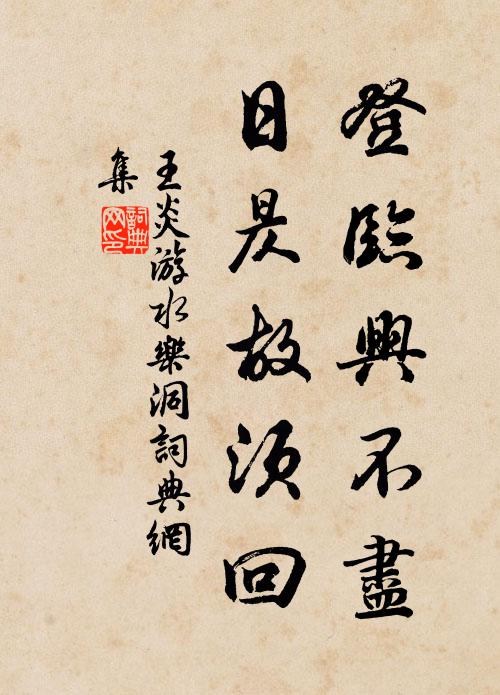 登臨興不盡
日昃故須回
王炎游水樂洞詞典網
集
詞典网印